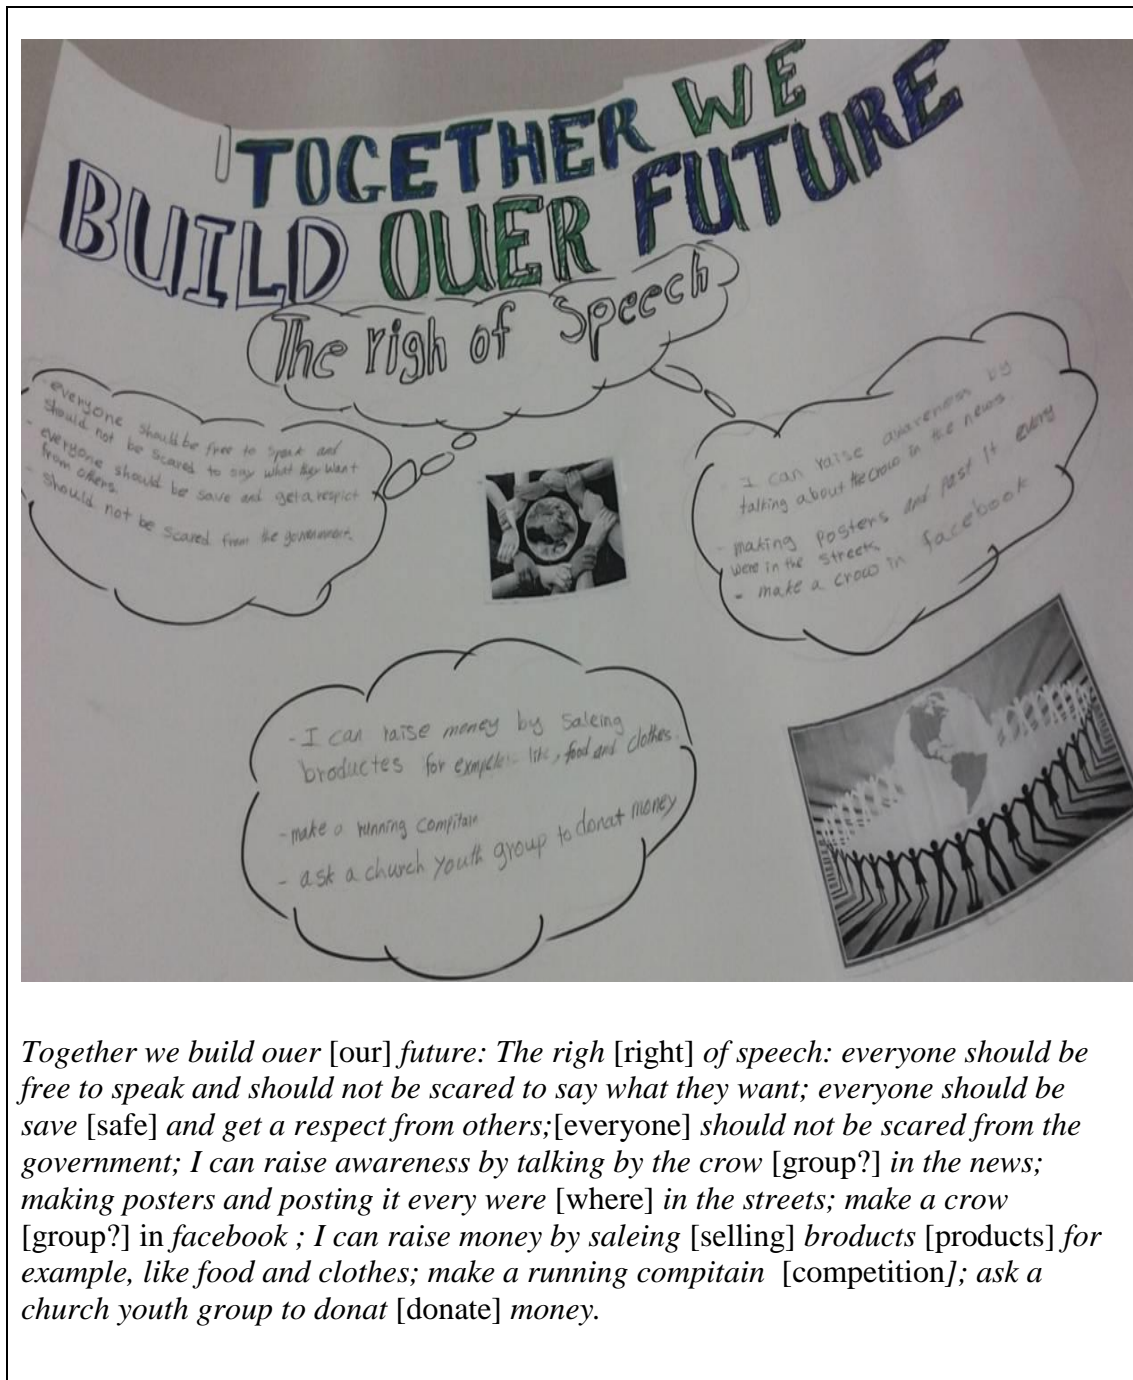 TOGETHER WE
BUILD OUER FUTURE
The righ of Speech
- everyone should be free to speak and
should not be scared to say what they want
- everyone should be save and get a respict
from others.
- should not be scared from the government.
- I can raise awareness by
talking about the crow in the news.
- making posters and past it every
were in the streets.
- make a crow in facebook
- I can raise money by saleing
broductes for exmpele:- like, food and clothes.
- make a running compitain
- ask a church youth group to donat money
Together we build ouer [our] future: The righ [right] of speech: everyone should be
free to speak and should not be scared to say what they want; everyone should be
save [safe] and get a respect from others;[everyone] should not be scared from the
government; I can raise awareness by talking by the crow [group?] in the news;
making posters and posting it every were [where] in the streets; make a crow
[group?] in facebook ; I can raise money by saleing [selling] broducts [products] for
example, like food and clothes; make a running compitain [competition]; ask a
church youth group to donat [donate] money.